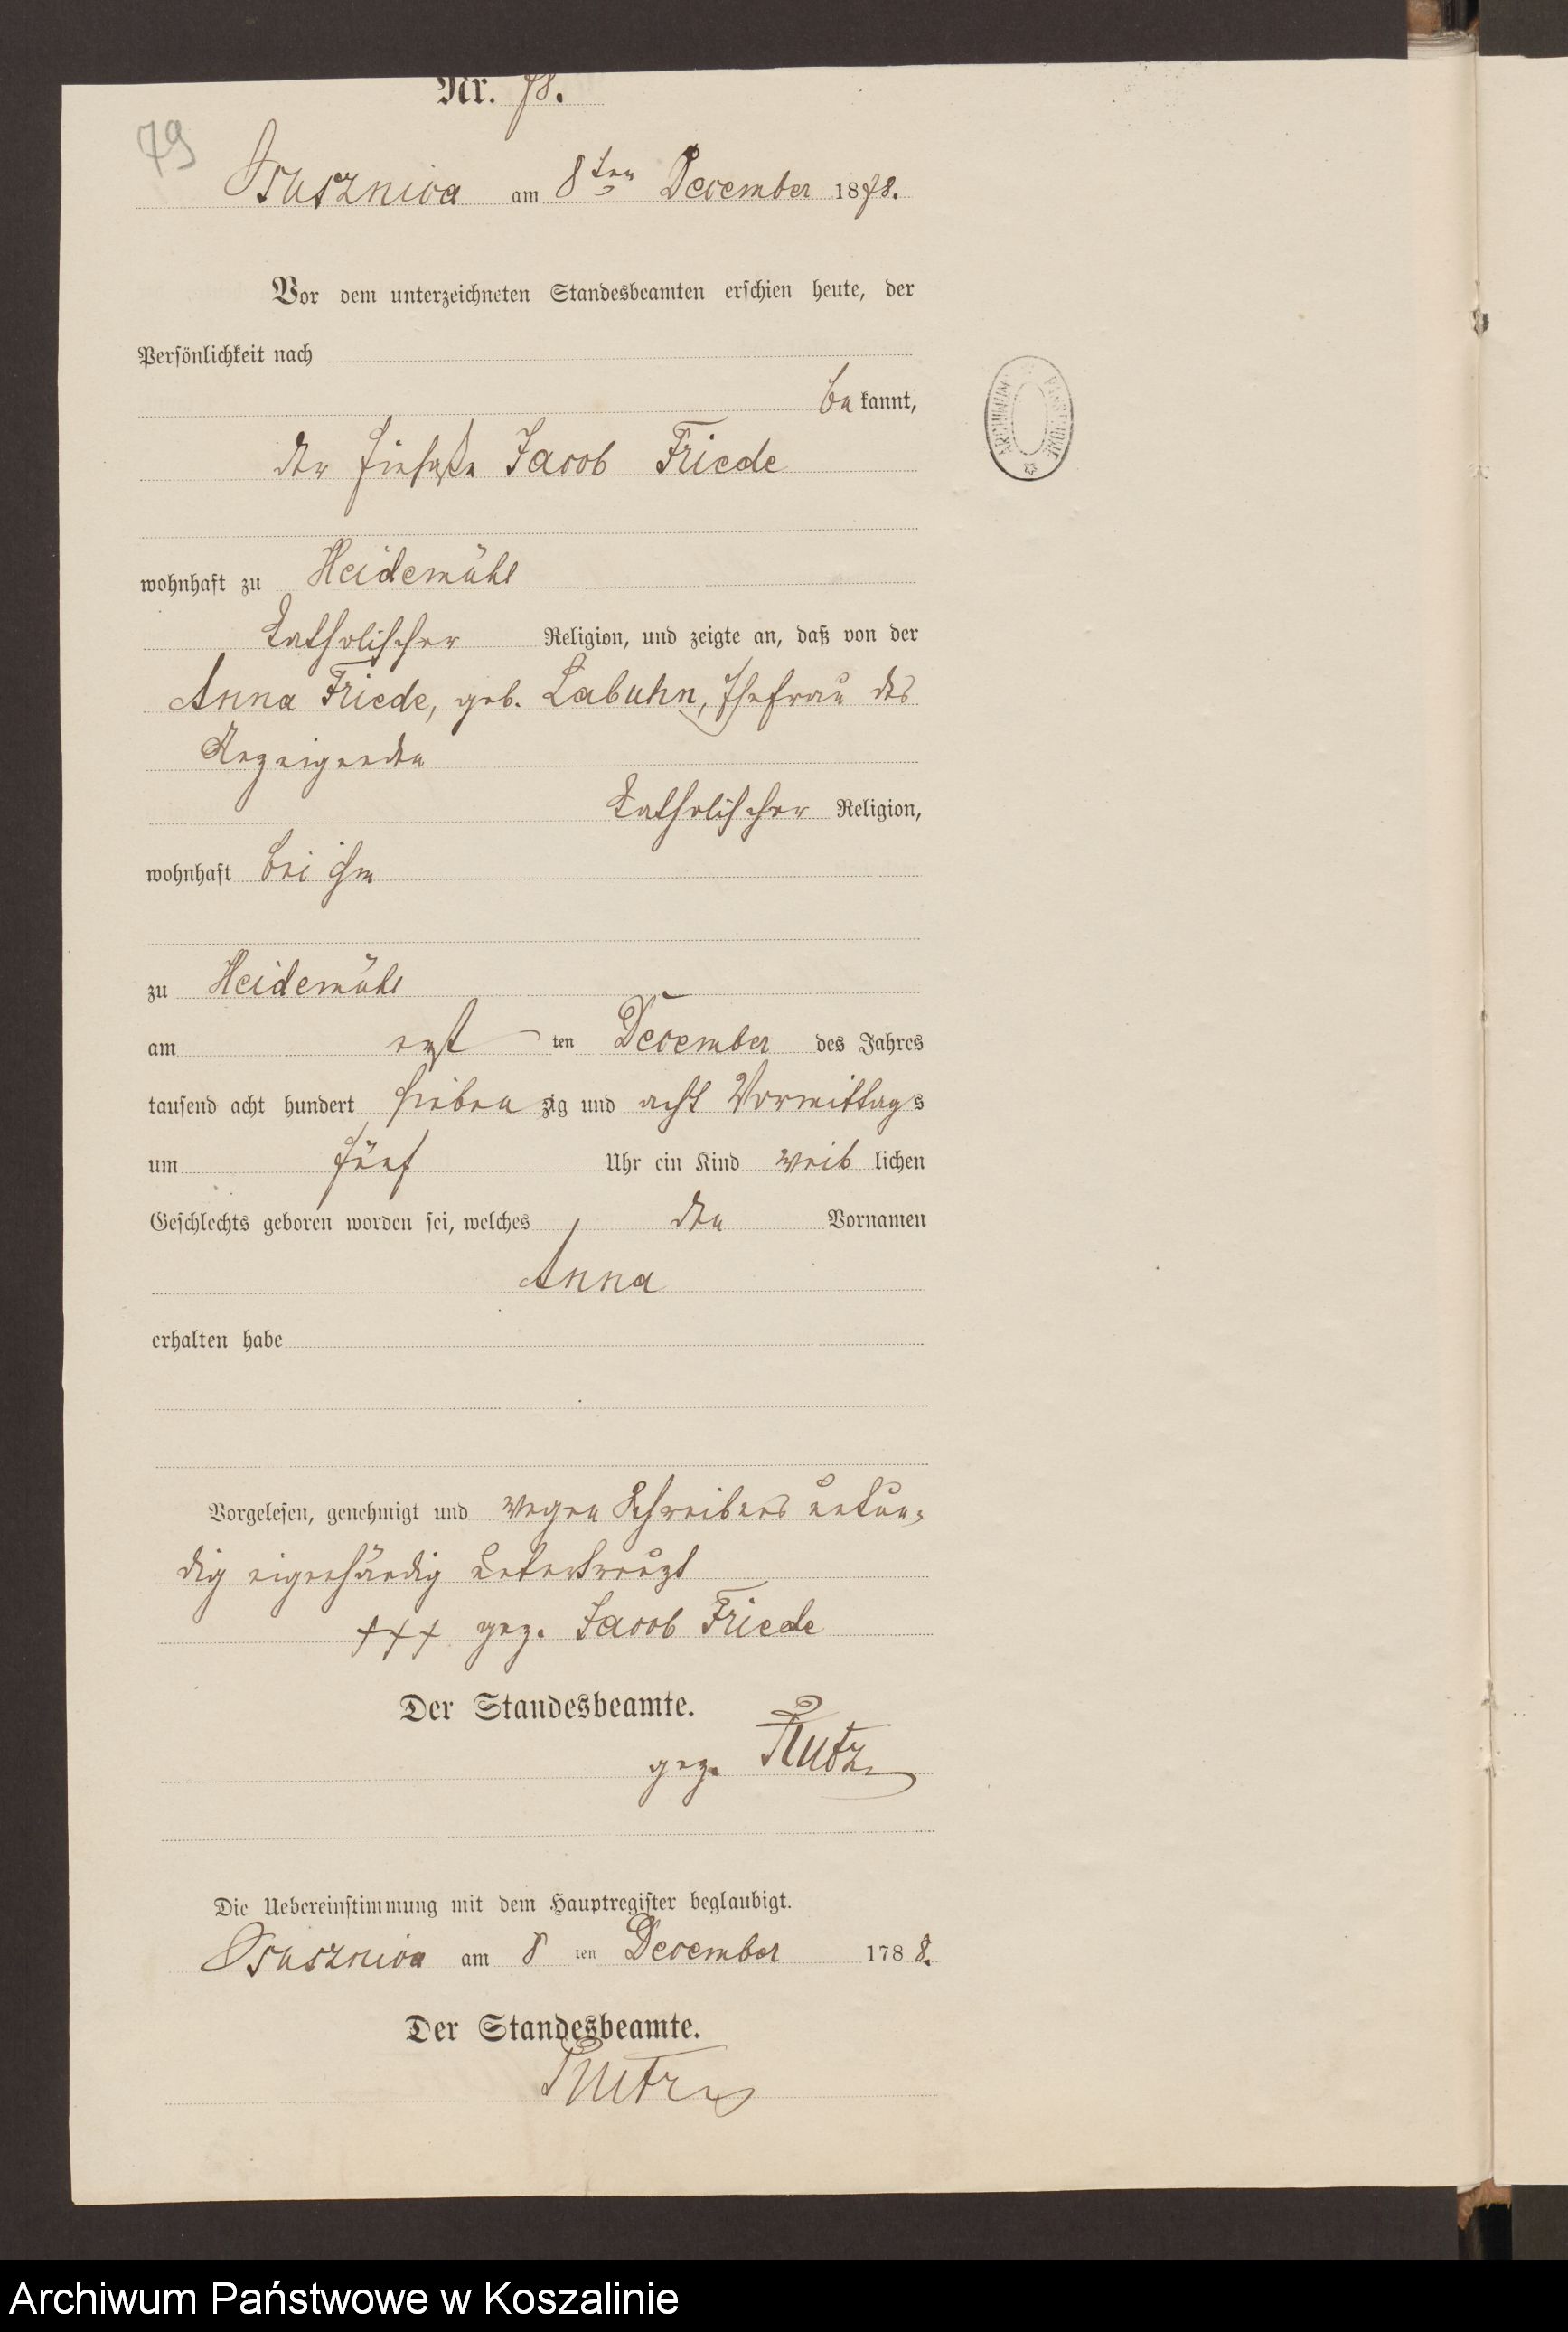 Nr. 78.
79
Osusznica am 8ten December 1878.
Vor dem unterzeichneten Standesbeamten erschien heute, der
Persönlichkeit nach
be kannt,
der Einsaße Jacob Friede
wohnhaft zu Heidemühl
katholischer Religion, und zeigte an, daß von der
Anna Friede, geb. Labuhn, Ehefrau des
Anzeigenden
katholischer Religion,
wohnhaft bei ihm
zu Heidemühl
am erst ten December des Jahres
tausend acht hundert sieben zig und acht Vormittags
um fünf Uhr ein Kind weib lichen
Geschlechts geboren worden sei, welches den Vornamen
Anna
erhalten habe
Vorgelesen, genehmigt und wegen Schreibens unkun-
dig eigenhändig unterkreuzt
+++ gez. Jacob Friede
Der Standesbeamte.
gez.
Die Uebereinstimmung mit dem Hauptregister beglaubigt.
Osusznica am 8 ten December 178 8.
Der Standesbeamte.
ARCHIWUM PAŃSTWOWE
Archiwum Państwowe w Koszalinie